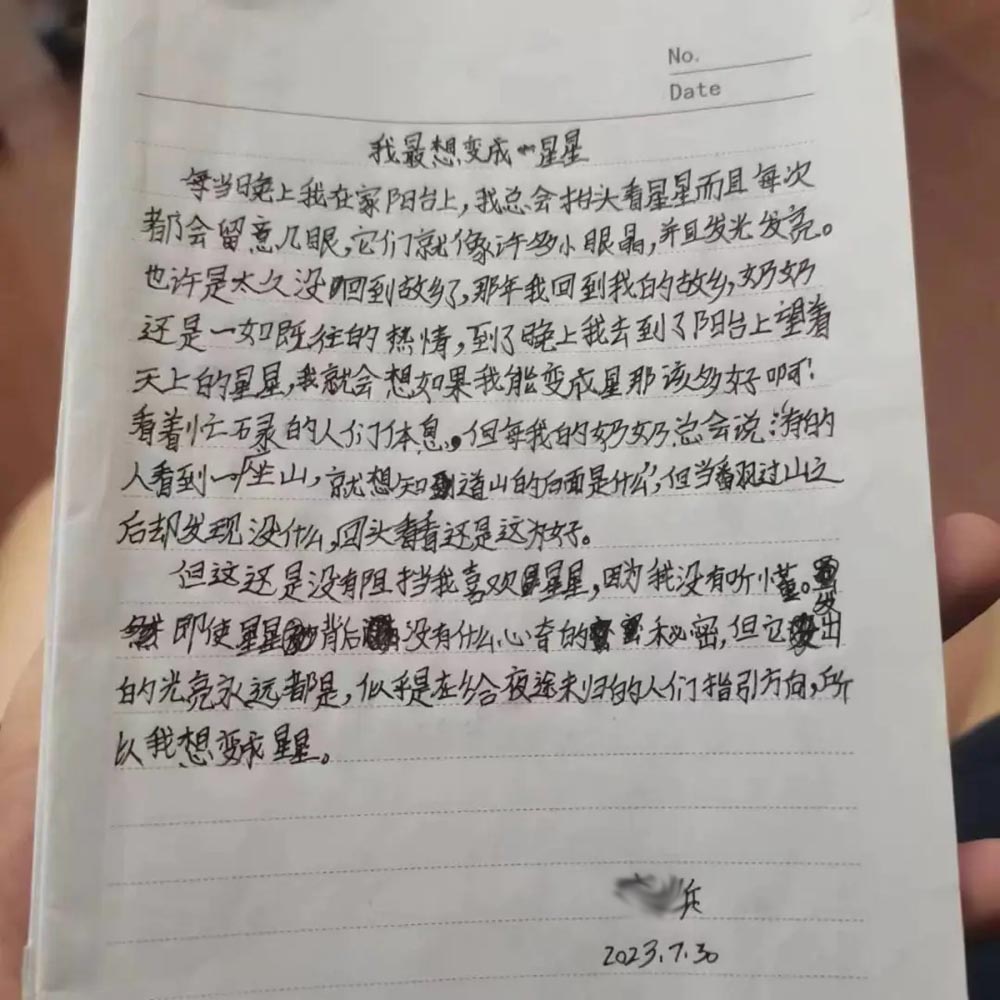 No.
Date
我最想变成一星星
每当晚上我在家阳台上,我总会抬头看星星而且每次
都会留意几眼,它们就像许多小眼晶,并且发光发亮。
也许是太久没回到故乡了,那年我回到我的故乡,奶奶
还是一如既往的热情,到了晚上我去到了阳台上望着
天上的星星,我就会想如果我能变成星那该多好啊!
看着忙碌的人们休息。但每我的奶奶总会说:有的
人看到一座山,就想知道山的后面是什么,但当翻过山之
后却发现没什么,回头看看还是这方好。
但这还是没有阻挡我喜欢星星,因为我没有听懂。
即使星星背后没有什么心奇的秘密,但它发出
的光亮永远都是,似乎是在给夜途未归的人们指引方向,所
以我想变成星星。
兵
2023.7.30